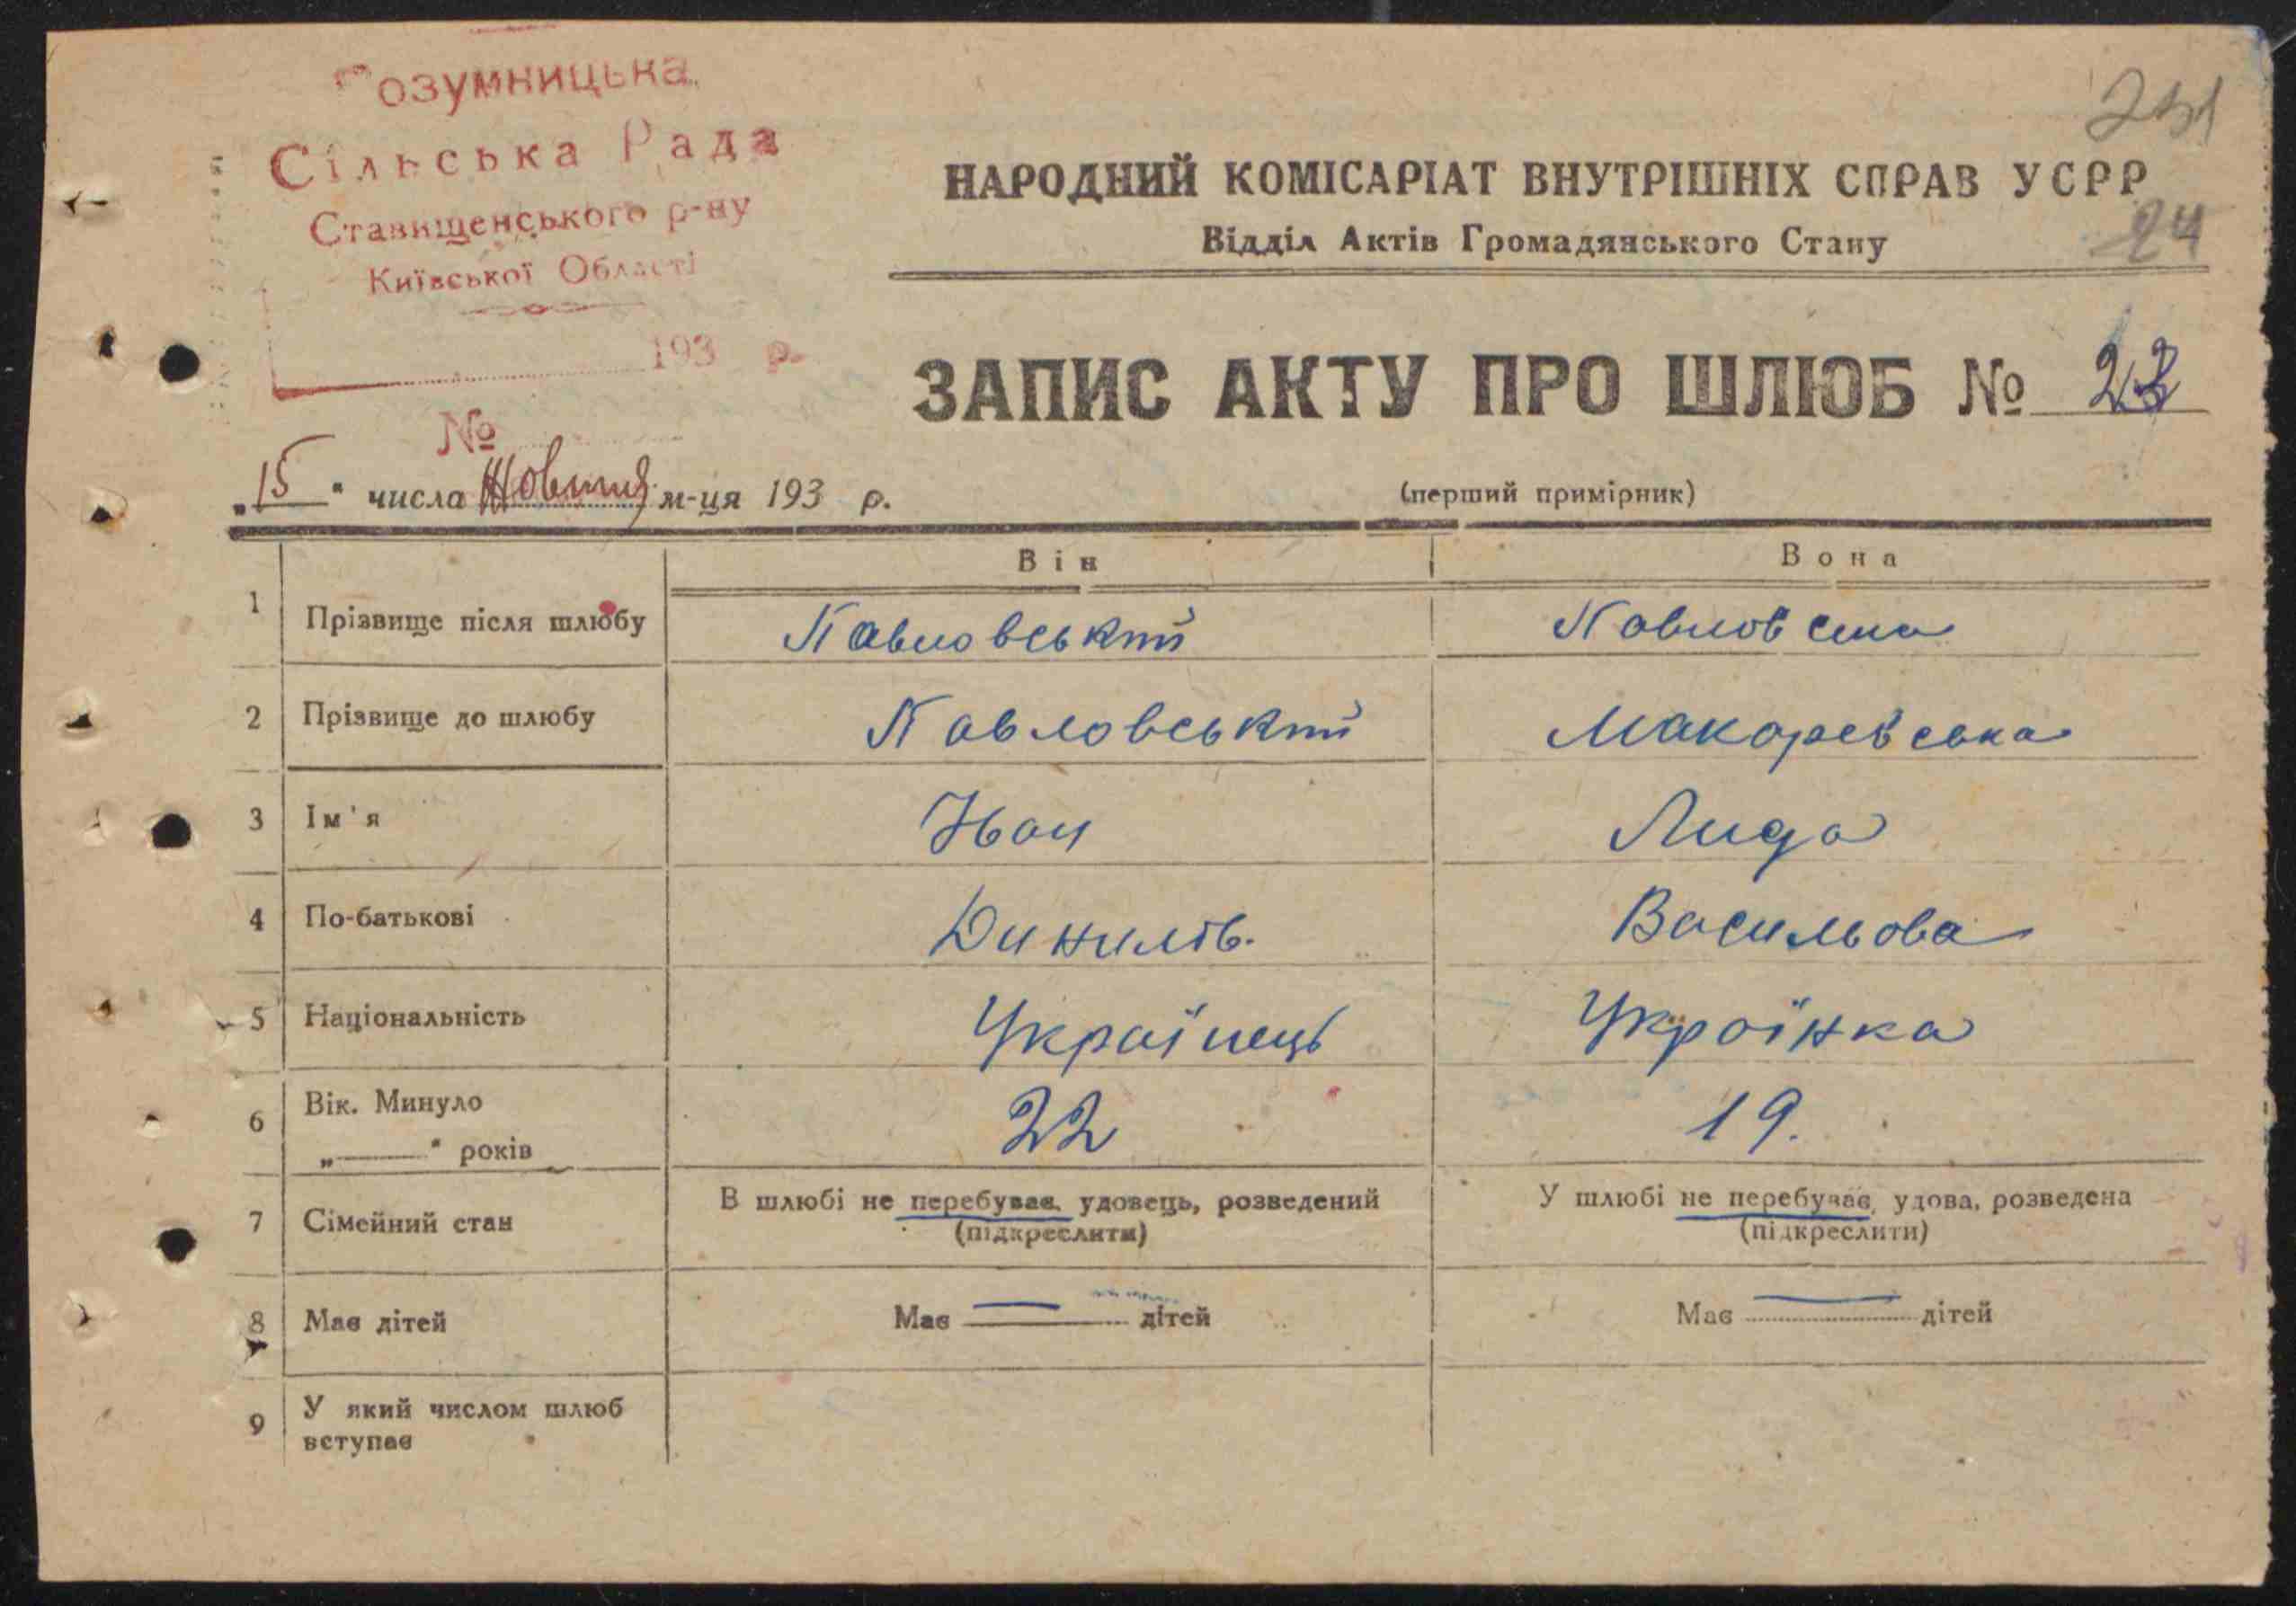 Розумницька
Сільська Рада
Ставищенського р-ну
Київської Області
193 р.
№
НАРОДНИЙ КОМІСАРІАТ ВНУТРІШНІХ СПРАВ УСРР
24
Відділ Актів Громадянського Стану
ЗАПИС АКТУ ПРО ШЛЮБ №
„15" числа Жовтня м-ця 193 р.
(перший примірник)
Він Вона
1 Прізвище після шлюбу Павловський Павловська
2 Прізвище до шлюбу Павловський Макаревська
3 Ім'я Иван Лида
4 По-батькові Василь ова
5 Національність Українець Українка
6 Вік. Минуло 22 19.
„——" років
7 Сімейний стан В шлюбі не перебуває, удовець, розведений У шлюбі не перебуває, удова, розведена
(підкреслити) (підкреслити)
8 Має дітей Має — дітей Має — дітей
9 У який числом шлюб
вступає